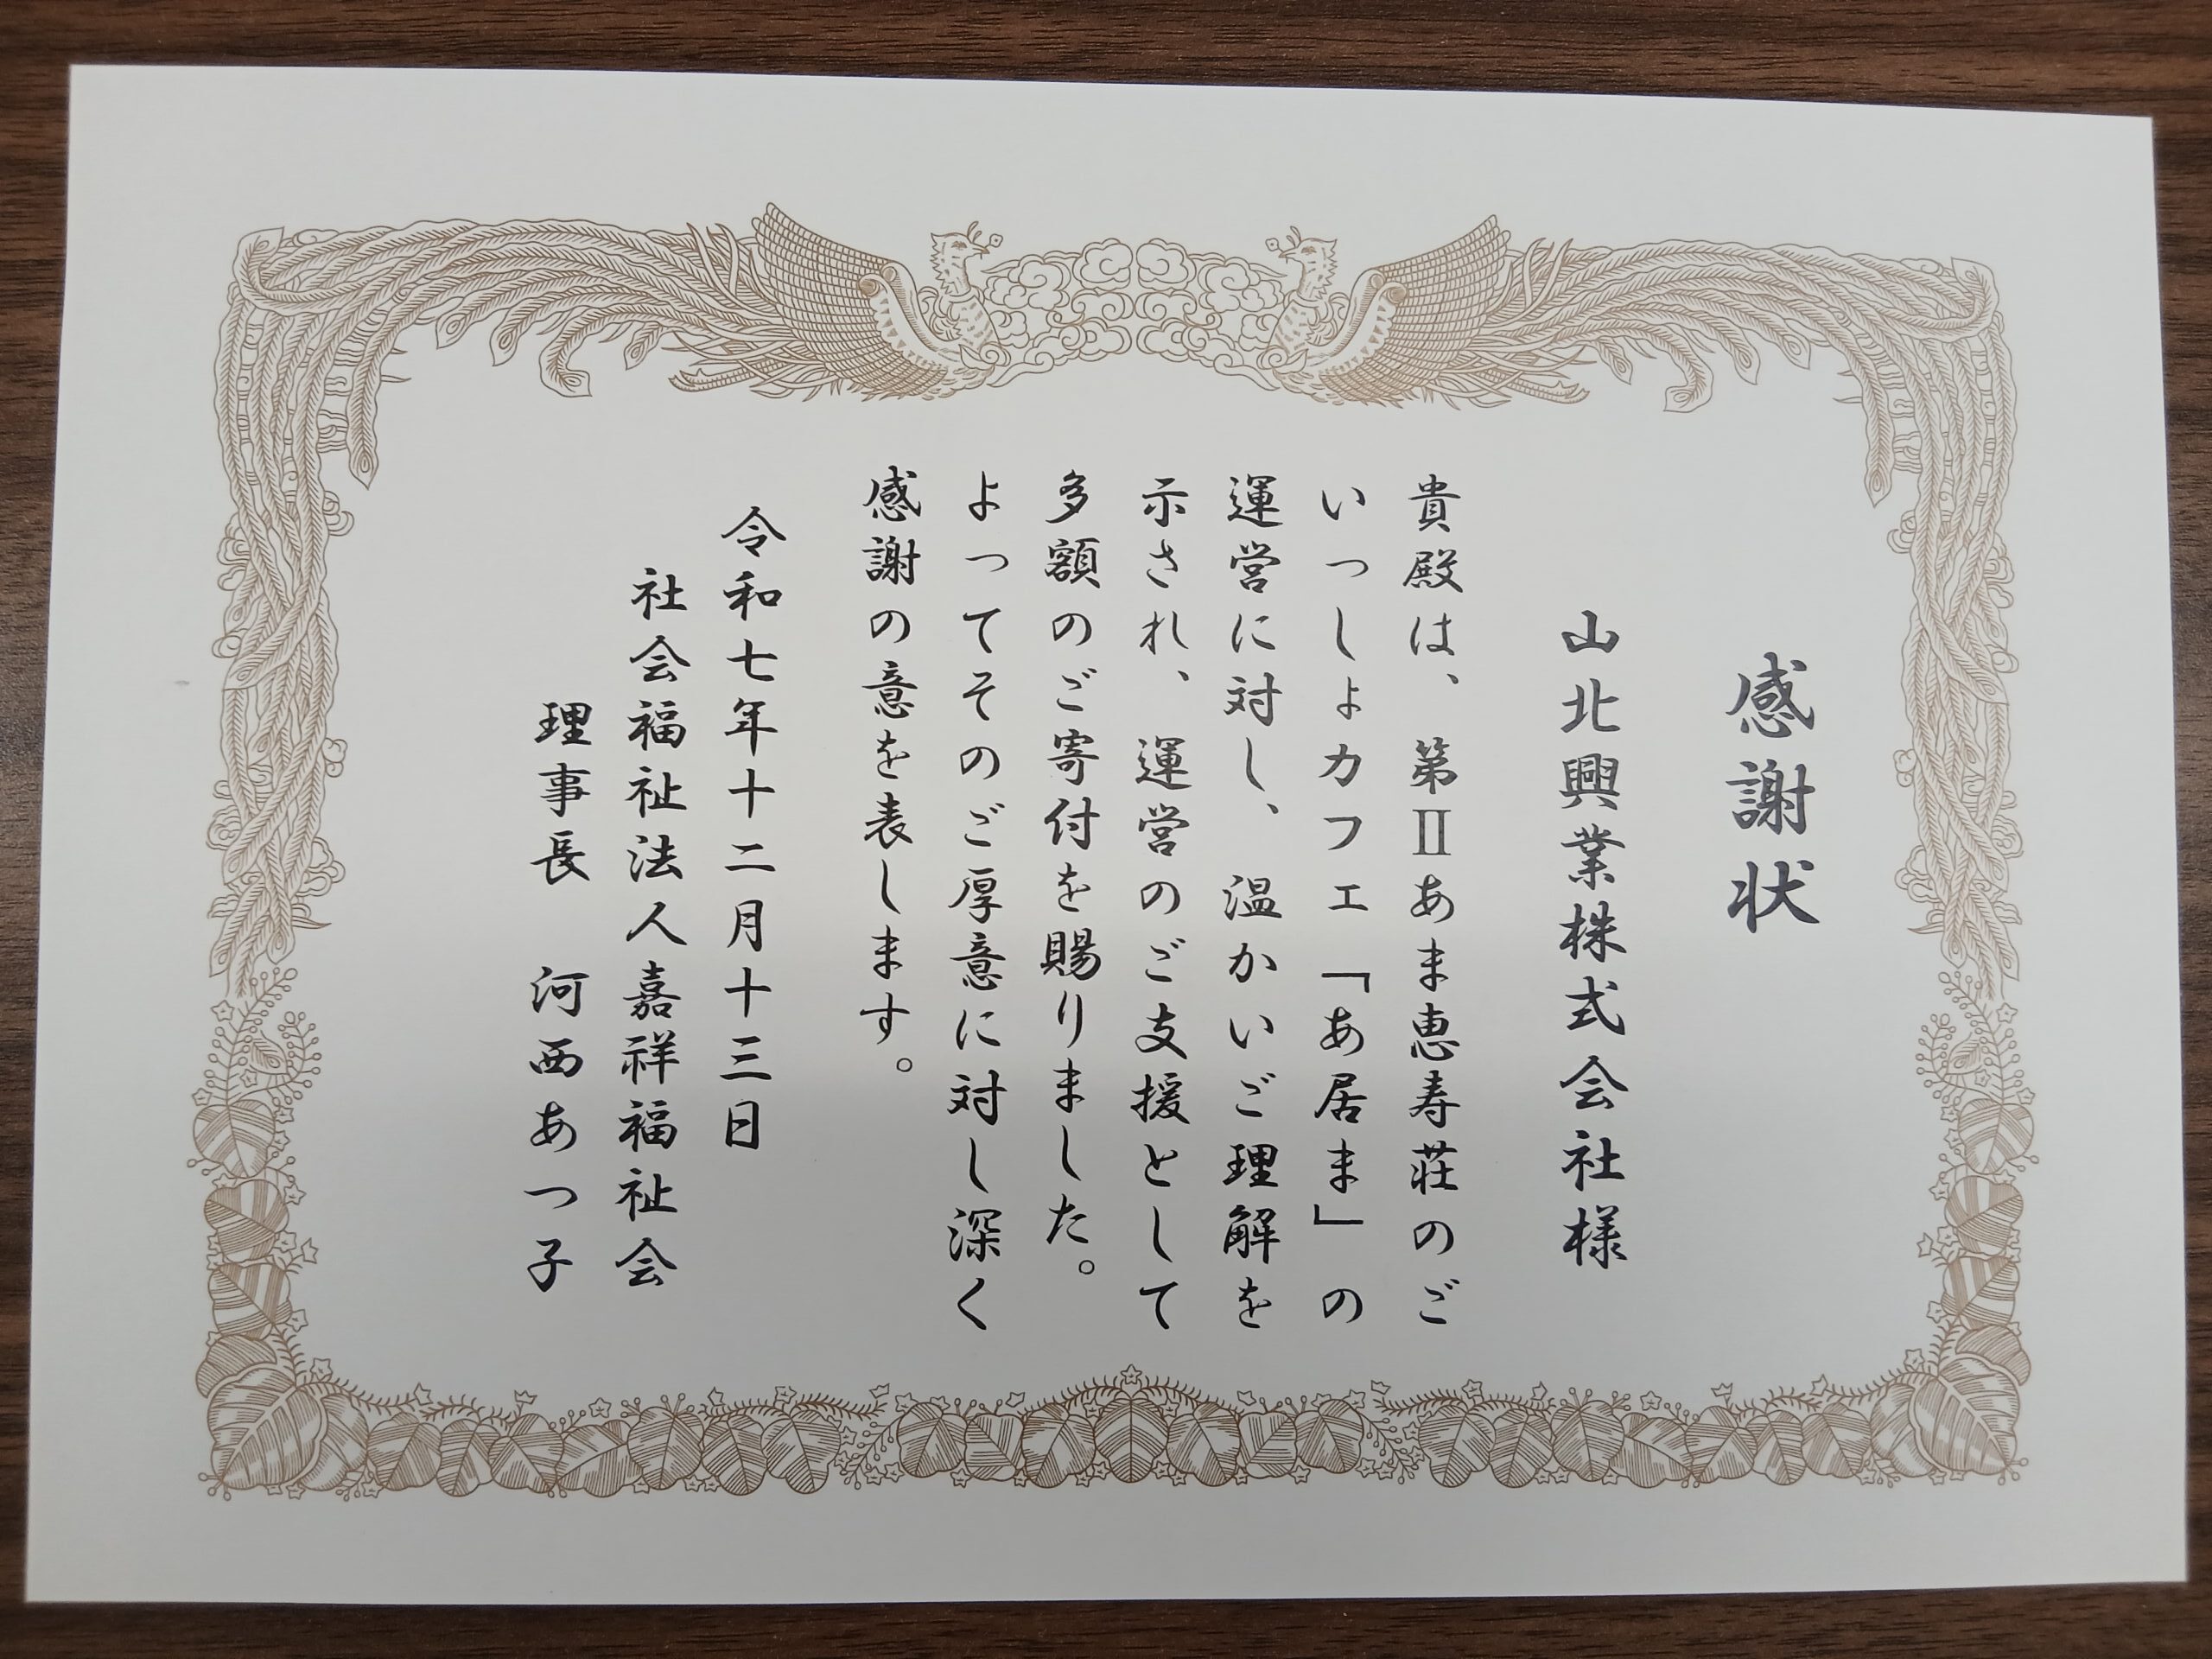 感謝状
山北興業株式会社様
貴殿は、第Ⅱあま恵寿荘のご
いっしょカフェ「あ居ま」の
運営に対し、温かいご理解を
示され、運営のご支援として
多額のご寄付を賜りました。
よってそのご厚意に対し深く
感謝の意を表します。
令和七年十二月十三日
社会福祉法人嘉祥福祉会
理事長　河西あつ子